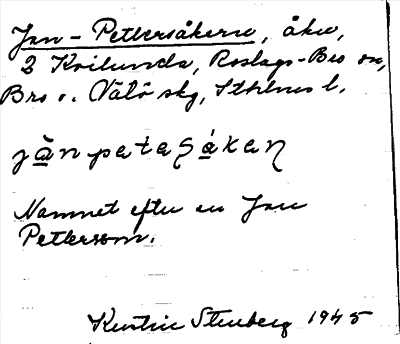 Jan-Pettersåkern, åker,
2 Kvilunda, Roslags-Bro sn,
Bro o. Vätö skg, Sthlms l.
jànpetaṣákaṇ
Namnet efter en Jan
Petterson.
Kerstin Stenberg 1945